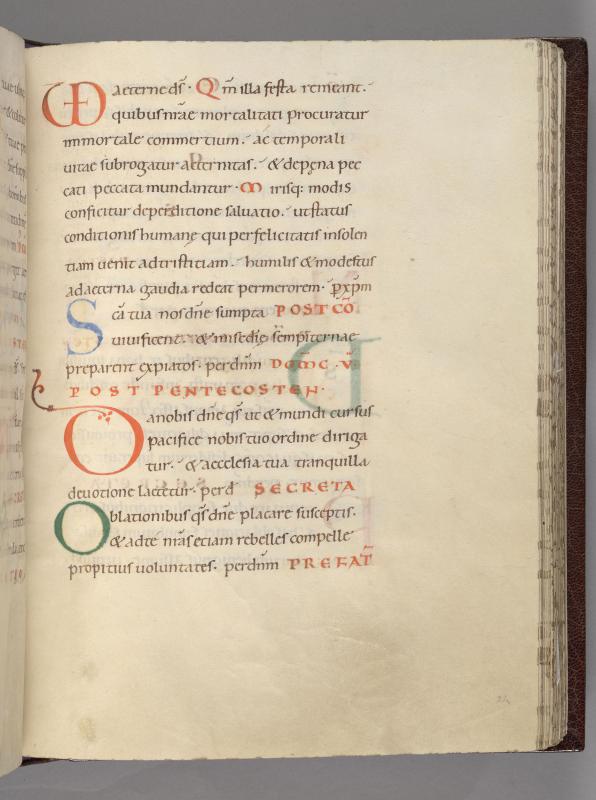 VD aeterne ds̄. Qm̄ illa festa remeant.
quibus nr̄ae mortalitati procuratur
immortale commertium. ac temporali
uitae subrogatur aeternitas. & de pęna pec
cati peccata mundantur. Mirisq: modis
conficitur de perditione saluatio. ut status
conditionis humanę qui per felicitatis insolen
tiam uenit ad tristitiam. humilis & modestus
ad aeterna gaudia redeat per merorem. p̱ xp̄m
Sc̄a tua nos dn̄e sumpta POST CŌ
uiuificent. & misc̄dię sempiternae
preparent expiatos. per dn̄m DOMC. V.
POST PENTECOSTEN.
Da nobis dn̄e qs̄ ut & mundi cursus
pacifice nobis tuo ordine diriga
tur. & aecclesia tua tranquilla
deuotione laetetur. per d̄ SECRETA
Oblationibus qs̄ dn̄e placare susceptis.
& ad te nr̄as etiam rebelles compelle
propitius uoluntates. per dn̄m PREFAT̄